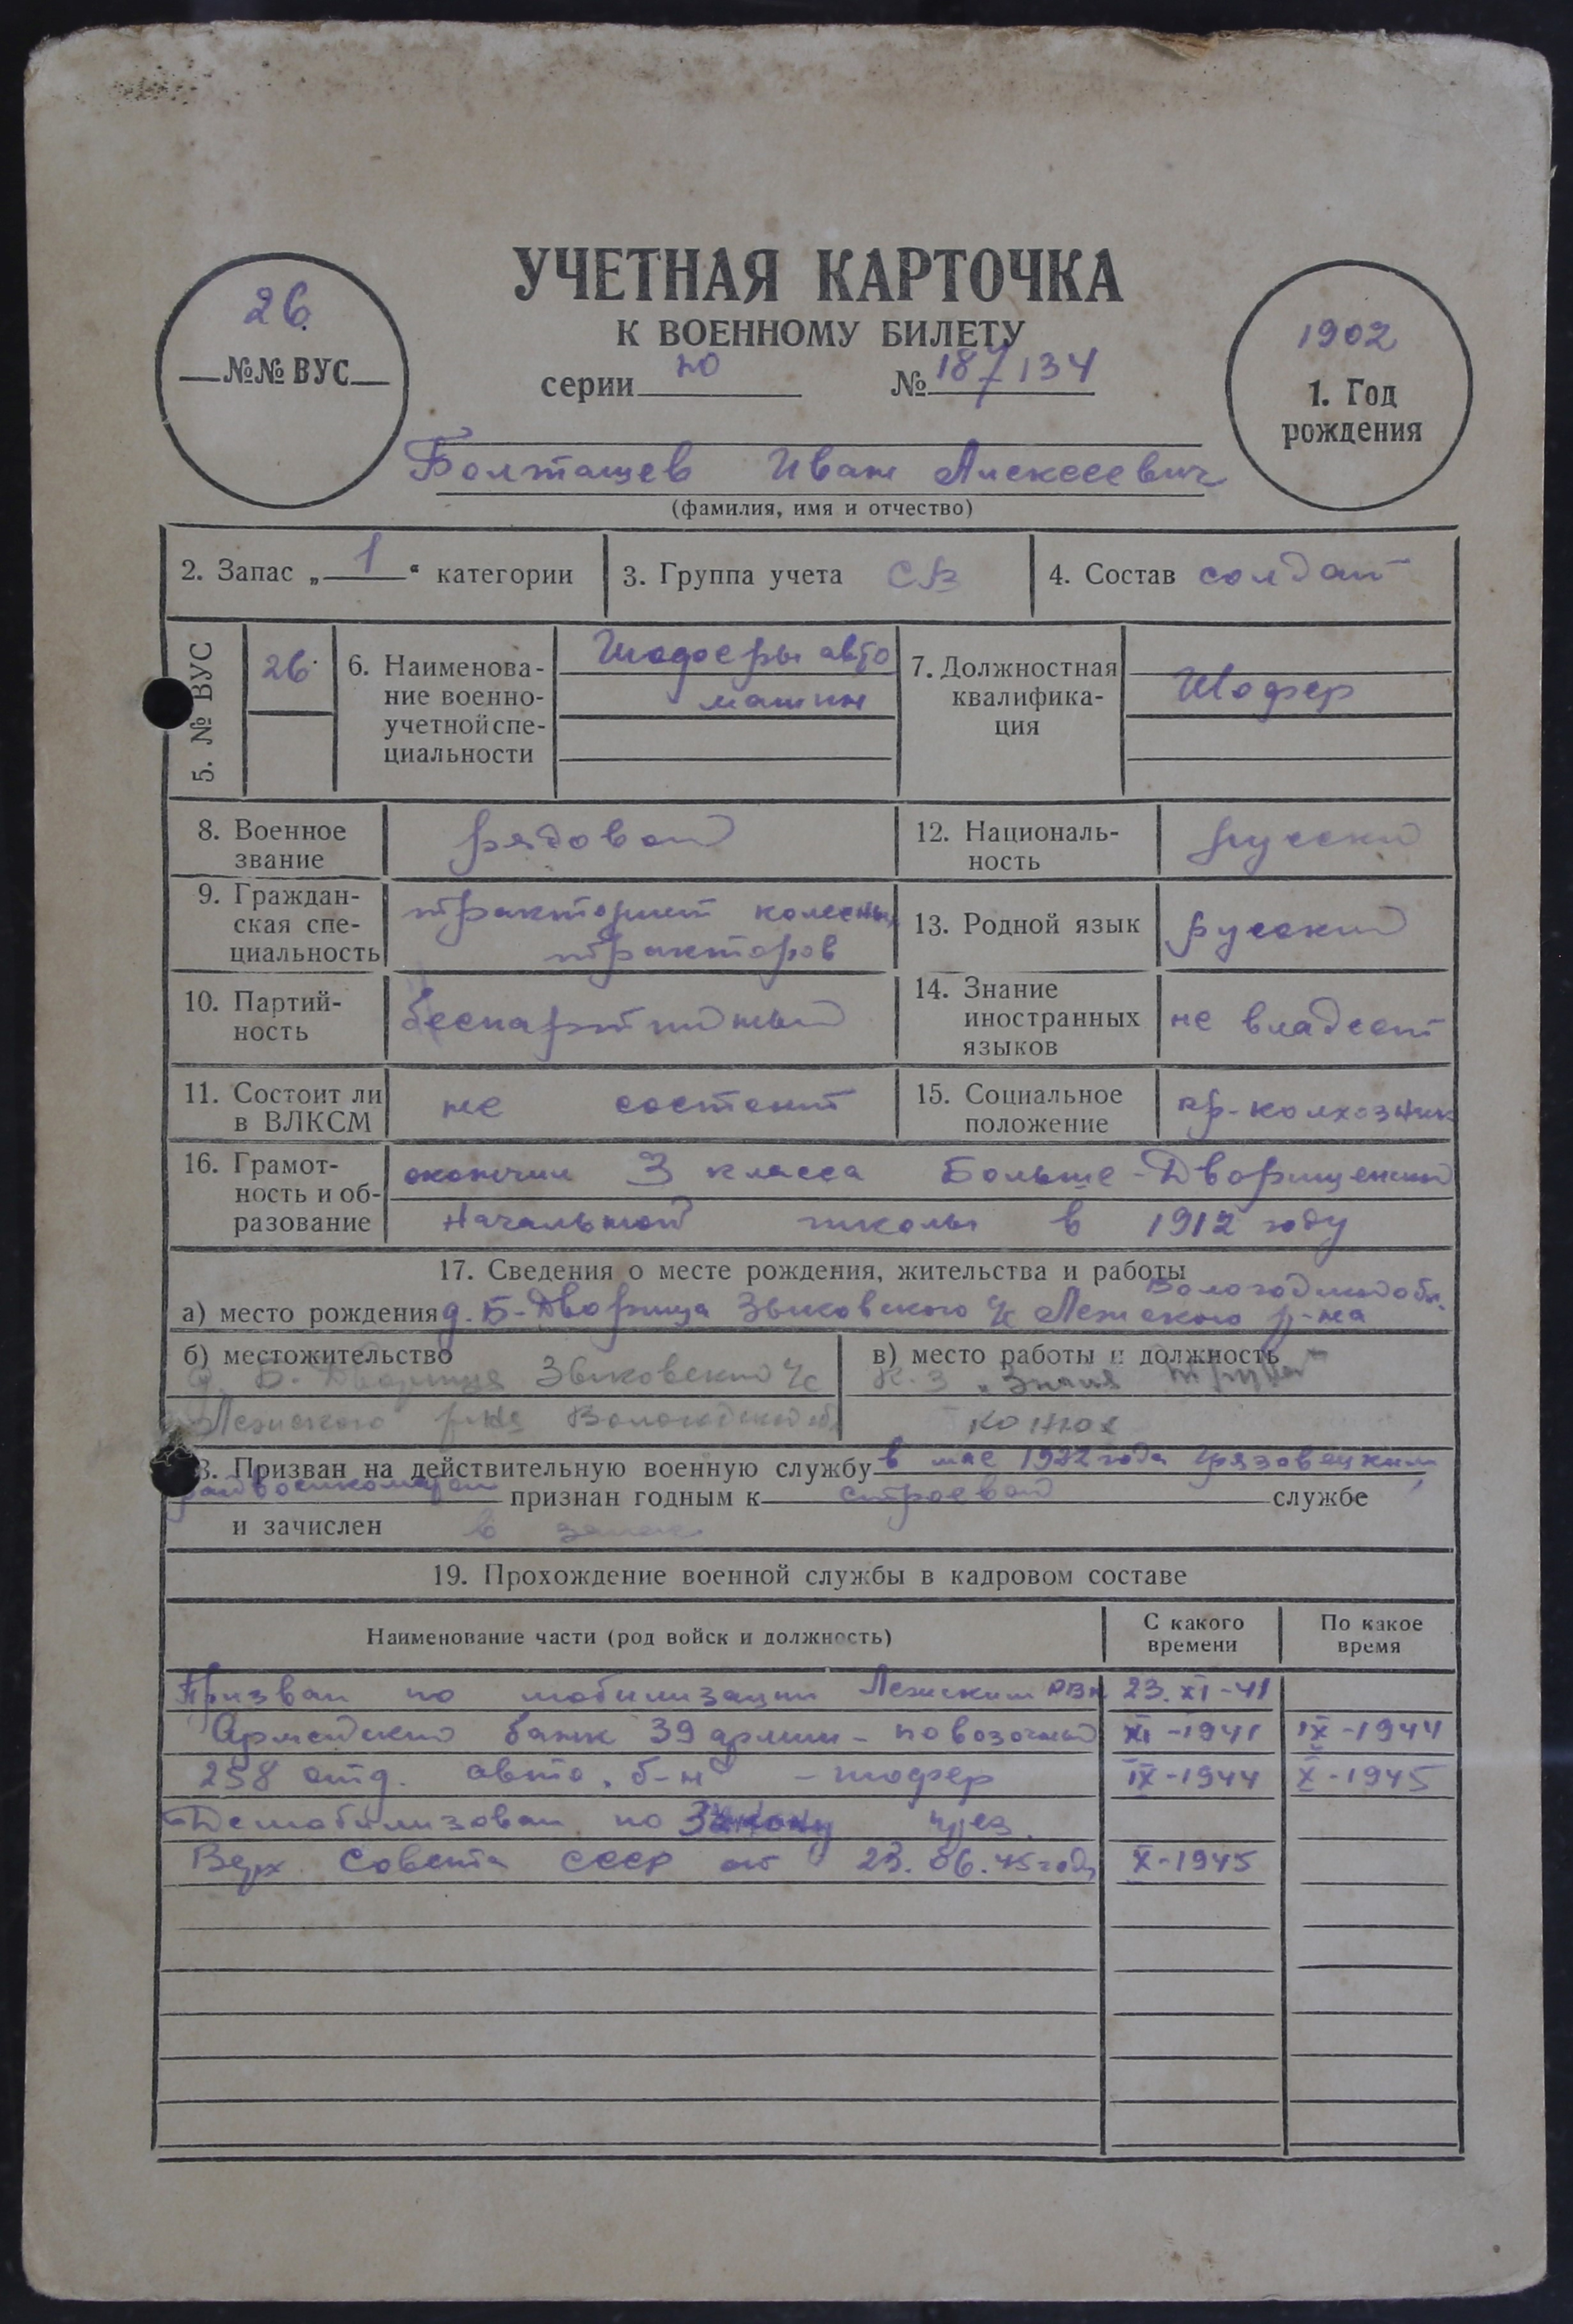 26.
№№ ВУС
УЧЕТНАЯ КАРТОЧКА
К ВОЕННОМУ БИЛЕТУ
серии НО № 187134
1902
1. Год
рождения
Болташев Иван Алексеевич
(фамилия, имя и отчество)
2. Запас „ 1 “ категории
3. Группа учета СВ
4. Состав солдат
5. № ВУС
26.
6. Наименова-
ние военно-
учетной спе-
циальности
Шофера авто
машин
7. Должностная
квалифика-
ция
Шофер
8. Военное
звание
рядовой
12. Националь-
ность
русский
9. Граждан-
ская спе-
циальность
тракторист колесных
тракторов
13. Родной язык
русский
10. Партий-
ность
беспартийный
14. Знание
иностранных
языков
не владеет
11. Состоит ли
в ВЛКСМ
не состоит
15. Социальное
положение
кр-колхозник
16. Грамот-
ность и об-
разование
окончил 3 класса Больше-Дворищенской
Начальной школы в 1912 году
17. Сведения о месте рождения, жительства и работы
Вологодской обл.
а) место рождения д. Б-Дворища Зыковского с/с Лежского р-на
б) местожительство
д. Б. Дворища Зыковский с/с
Лежского р-на Вологодской об.
в) место работы и должность
К-з „Знамя
конюх
18. Призван на действительную военную службу в мае 1922 года Грязовецким
райвоенкоматом признан годным к строевой службе
и зачислен в запас
19. Прохождение военной службы в кадровом составе
Наименование части (род войск и должность)
С какого
времени
По какое
время
Призван по мобилизации Лежским РВК 23.XI-41
Армейский 39 армии - повозочный XI-1941 IX-1944
258 отд. авто. б-н - шофер IX-1944 X-1945
Демобилизован по Закону
Верх. Совета СССР от 23.06.45 года X-1945